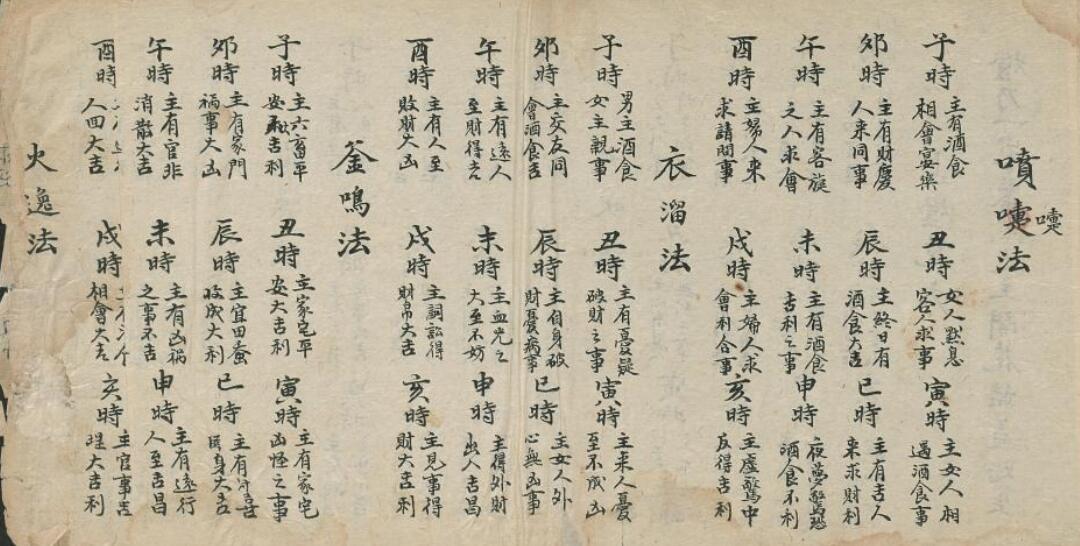 噴嚏法
嚏
子時 主有酒食相會宴樂 丑時 女人默息客人求事 寅時 主女人相遇酒食事
卯時 主有財慶人來同事 辰時 主終日有酒食大吉 巳時 主有吉人來求財利
午時 主有客旋之人求會 未時 主有酒食吉利之事 申時 夜夢驚恐酒食不利
酉時 主婦人來求請問事 戌時 主婦人求會利合事 亥時 主虛驚中反得吉利
衣溜法
子時 男主酒食女主親事 丑時 主有憂疑破財之事 寅時 主來人憂至不成凶
卯時 主交友同會酒食吉 辰時 主自身破財憂病事 巳時 主女人外心無凶事
午時 主有遠人至財得之 未時 主血光之大至不妨 申時 主得外財出人吉昌
酉時 主有人至敗財大凶 戌時 主詞訟得財帛大吉 亥時 主見事得財大吉利
釜鳴法
子時 主六畜平安吉利 丑時 主家宅平安大吉利 寅時 主有家宅凶怪之事
卯時 主有家門禍事大凶 辰時 主宜田蚕收成大利 巳時 主有喜身大吉
午時 主有官非消散大吉 未時 主有凶禍之事不吉 申時 主有遠行人至吉昌
酉時 人回大吉 戌時 相會大吉 亥時 主官事吉大吉利
火逸法